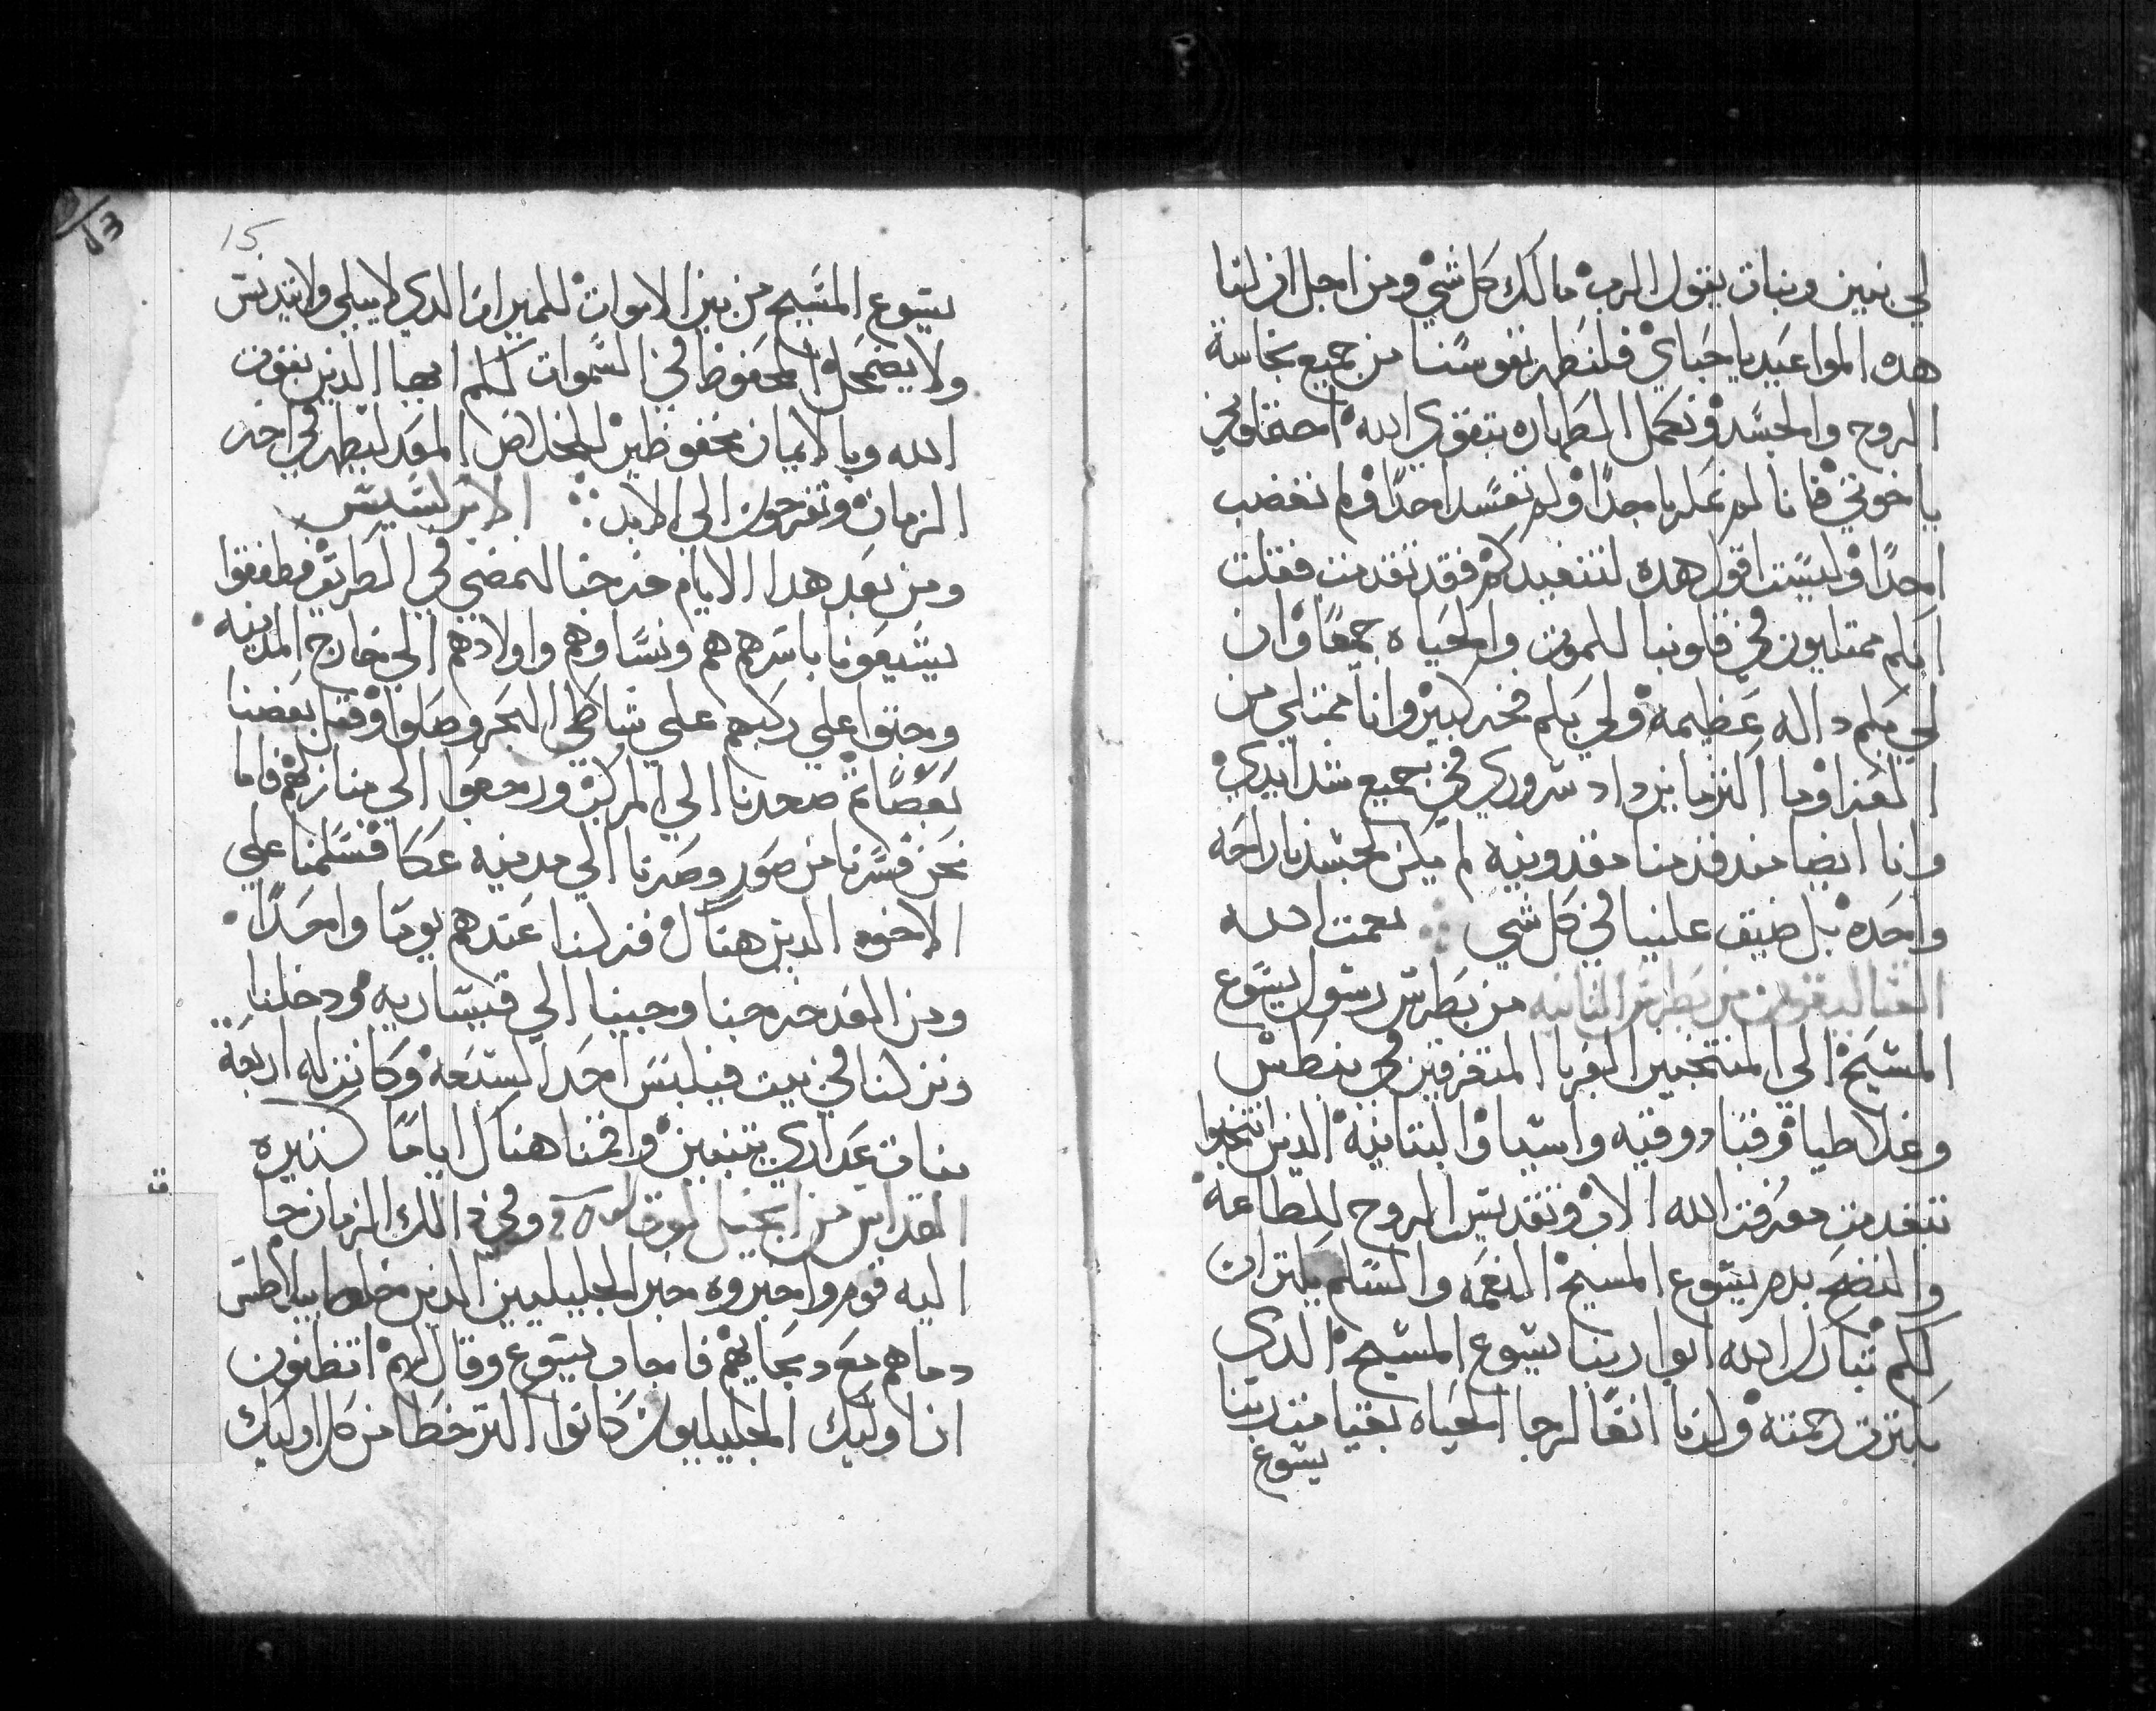 لي بنين وبنات يقول الرب مالك كل شي ومن اجل ان لنا
هده المواعيد يا حباي فلنطهر نفوسنا من جميع نجاسة
الروح والجسد ونكمل الطهاره بتقوي الله
يا خوتي فانا لم نظلم احدًا ولم نفسد احدًا ولم نغضب
احدًا وليست اقول هده فقد تقدمت فقلت
انكم ممتليون في قلوبنا للموت والحياه جمعًا وان
لي بكم داله عظيمه ولي بكم فخر كبير وانا ممتلي من
العزا وما اكثر ما يزداد سروري في جميع شدايدي
وانا ايضا مند قدمنا مقدونيه لم يكن لجسدنا راحه
واحده بل ضيق علينا في كل شي ∴ نعمت الله
القتاليقون من بطرس الثانيه من بطرس رسول يسوع
المسيح الي المنتخبين الغربا المتفرقين في بنطس
وغلاطيا وقبادوقيه واسيا والبتانية الدين انتخبوا
بتقدمت معرفت الله الاب وتقديس الروح للطاعة
والنضح بدم يسوع المسيح النعمه والسلم يكتران
لكم تبارك الله ابوا ربنا يسوع المسيح الدي
بكترت رحمته ولدنا انفًا لرجا الحياه بقيامت ربنا
يسوع
15
يسوع المسيح من بين الاموات للميرات الدي لا يبلي ولا يتدنس
ولا يضمحل المحفوظ في السموات لكم ايها الدين بقوت
الله وبالايمان محفوظين للخلاص المعد ليظهر في اخر
الزمان وتفرحون الي الابد ∴ الابركسيس
ومن بعد هدا الايام خرجنا لنمضي في الطريق فطفقوا
يشيعونا باسرهم هم ونساوهم واولادهم الي خارج المدينه
وجثوا علي ركبهم علي شاطي البحر وصلوا وقبل بعضنا
بعضًا ثم صعدنا الي المركب ورجعوا الي منازلهم فاما
نحن فسرنا من صور وصرنا الي مدينه عكا فسلمنا علي
الاخوه الدين هناك فنزلنا عندهم يومًا واحدًا
ومن الغد خرجنا وجينا الي قيساريه ودخلنا
ونزلنا في بيت فيلبس احد السبعة وكانت له اربعة
بنات عداري يتنبين واقمنا هناك ايامًا كتيره
القداس من انجيل لوقا وفي دالك الزمان جا
اليه قوم واخبروه خبر الجليليين الدين خلط بيلاطس
دماهم مع دبحايهم فاجاب يسوع وقال لهم اتظنون
ان اوليك الجليليون كانوا اكتر خطا من كل اوليك